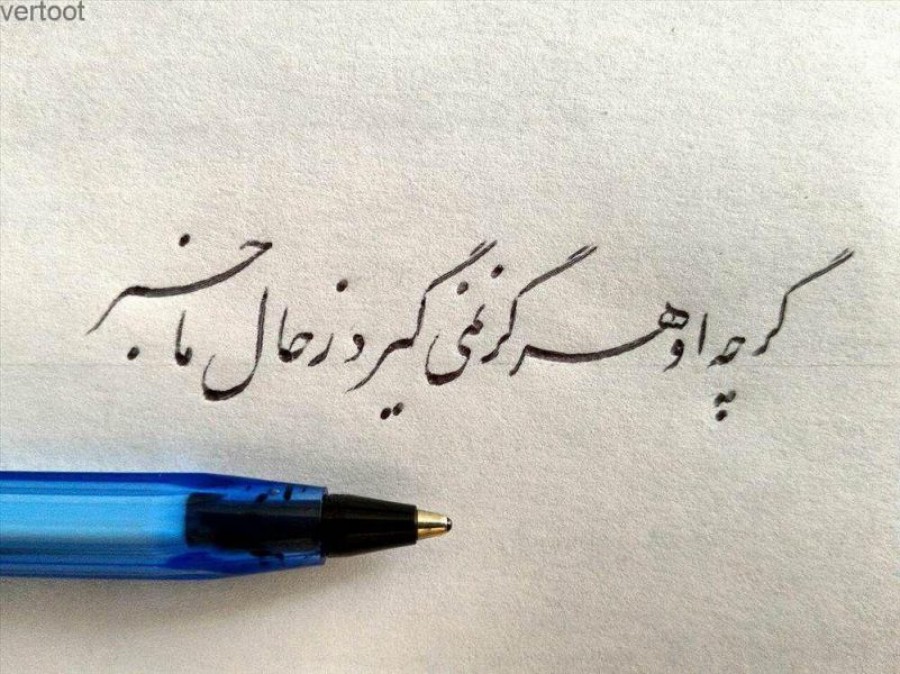 vertoot
گرچه او هرگز نمی گیرد ز حال ما خبر